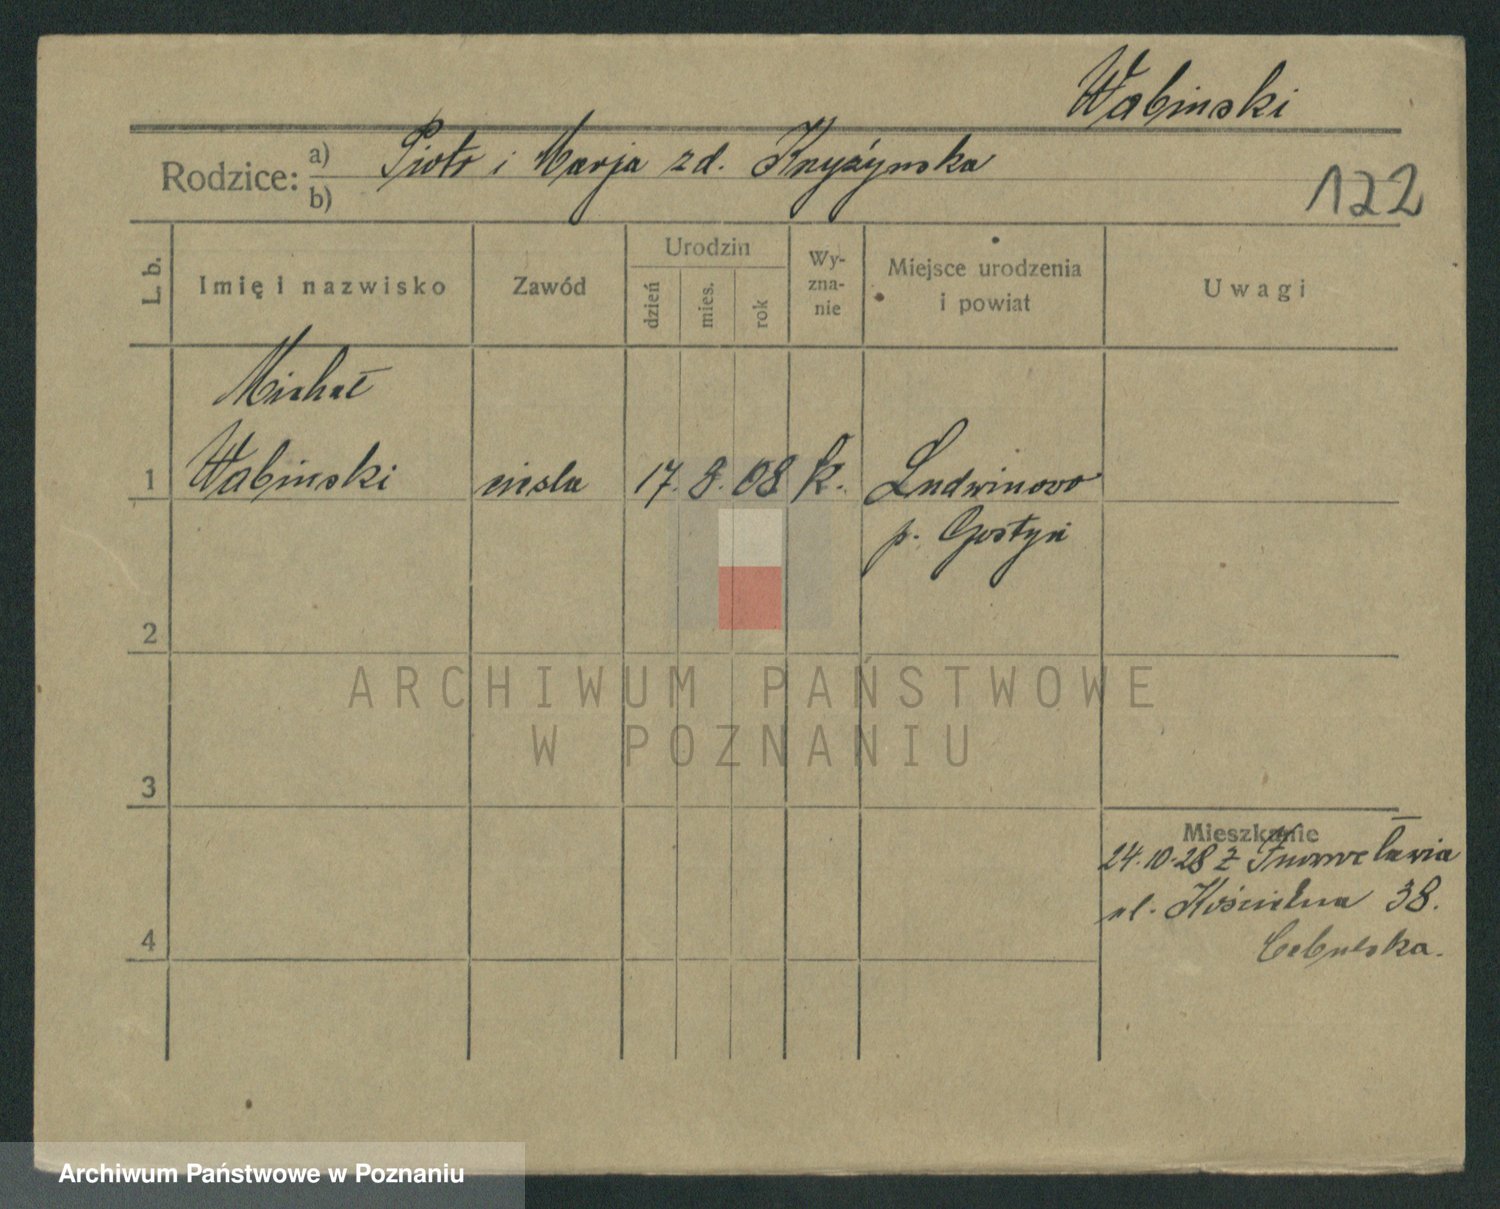 Wabinski
Rodzice: a) Piotr i Marja zd. Knyżynska
b)
122
L. b. Imię i nazwisko Zawód Urodzin Wyznanie Miejsce urodzenia i powiat Uwagi
dzień mies. rok
Michał
1 Wabinski cieśla 17. 8. 08 k. Ludwinowo
p. Gostyń
2
3
Mieszkanie
24.10.28 z Inowrocławia
ul. Kościelna 38.
4
Cebulska.
ARCHIWUM PAŃSTWOWE
W POZNANIU
Archiwum Państwowe w Poznaniu